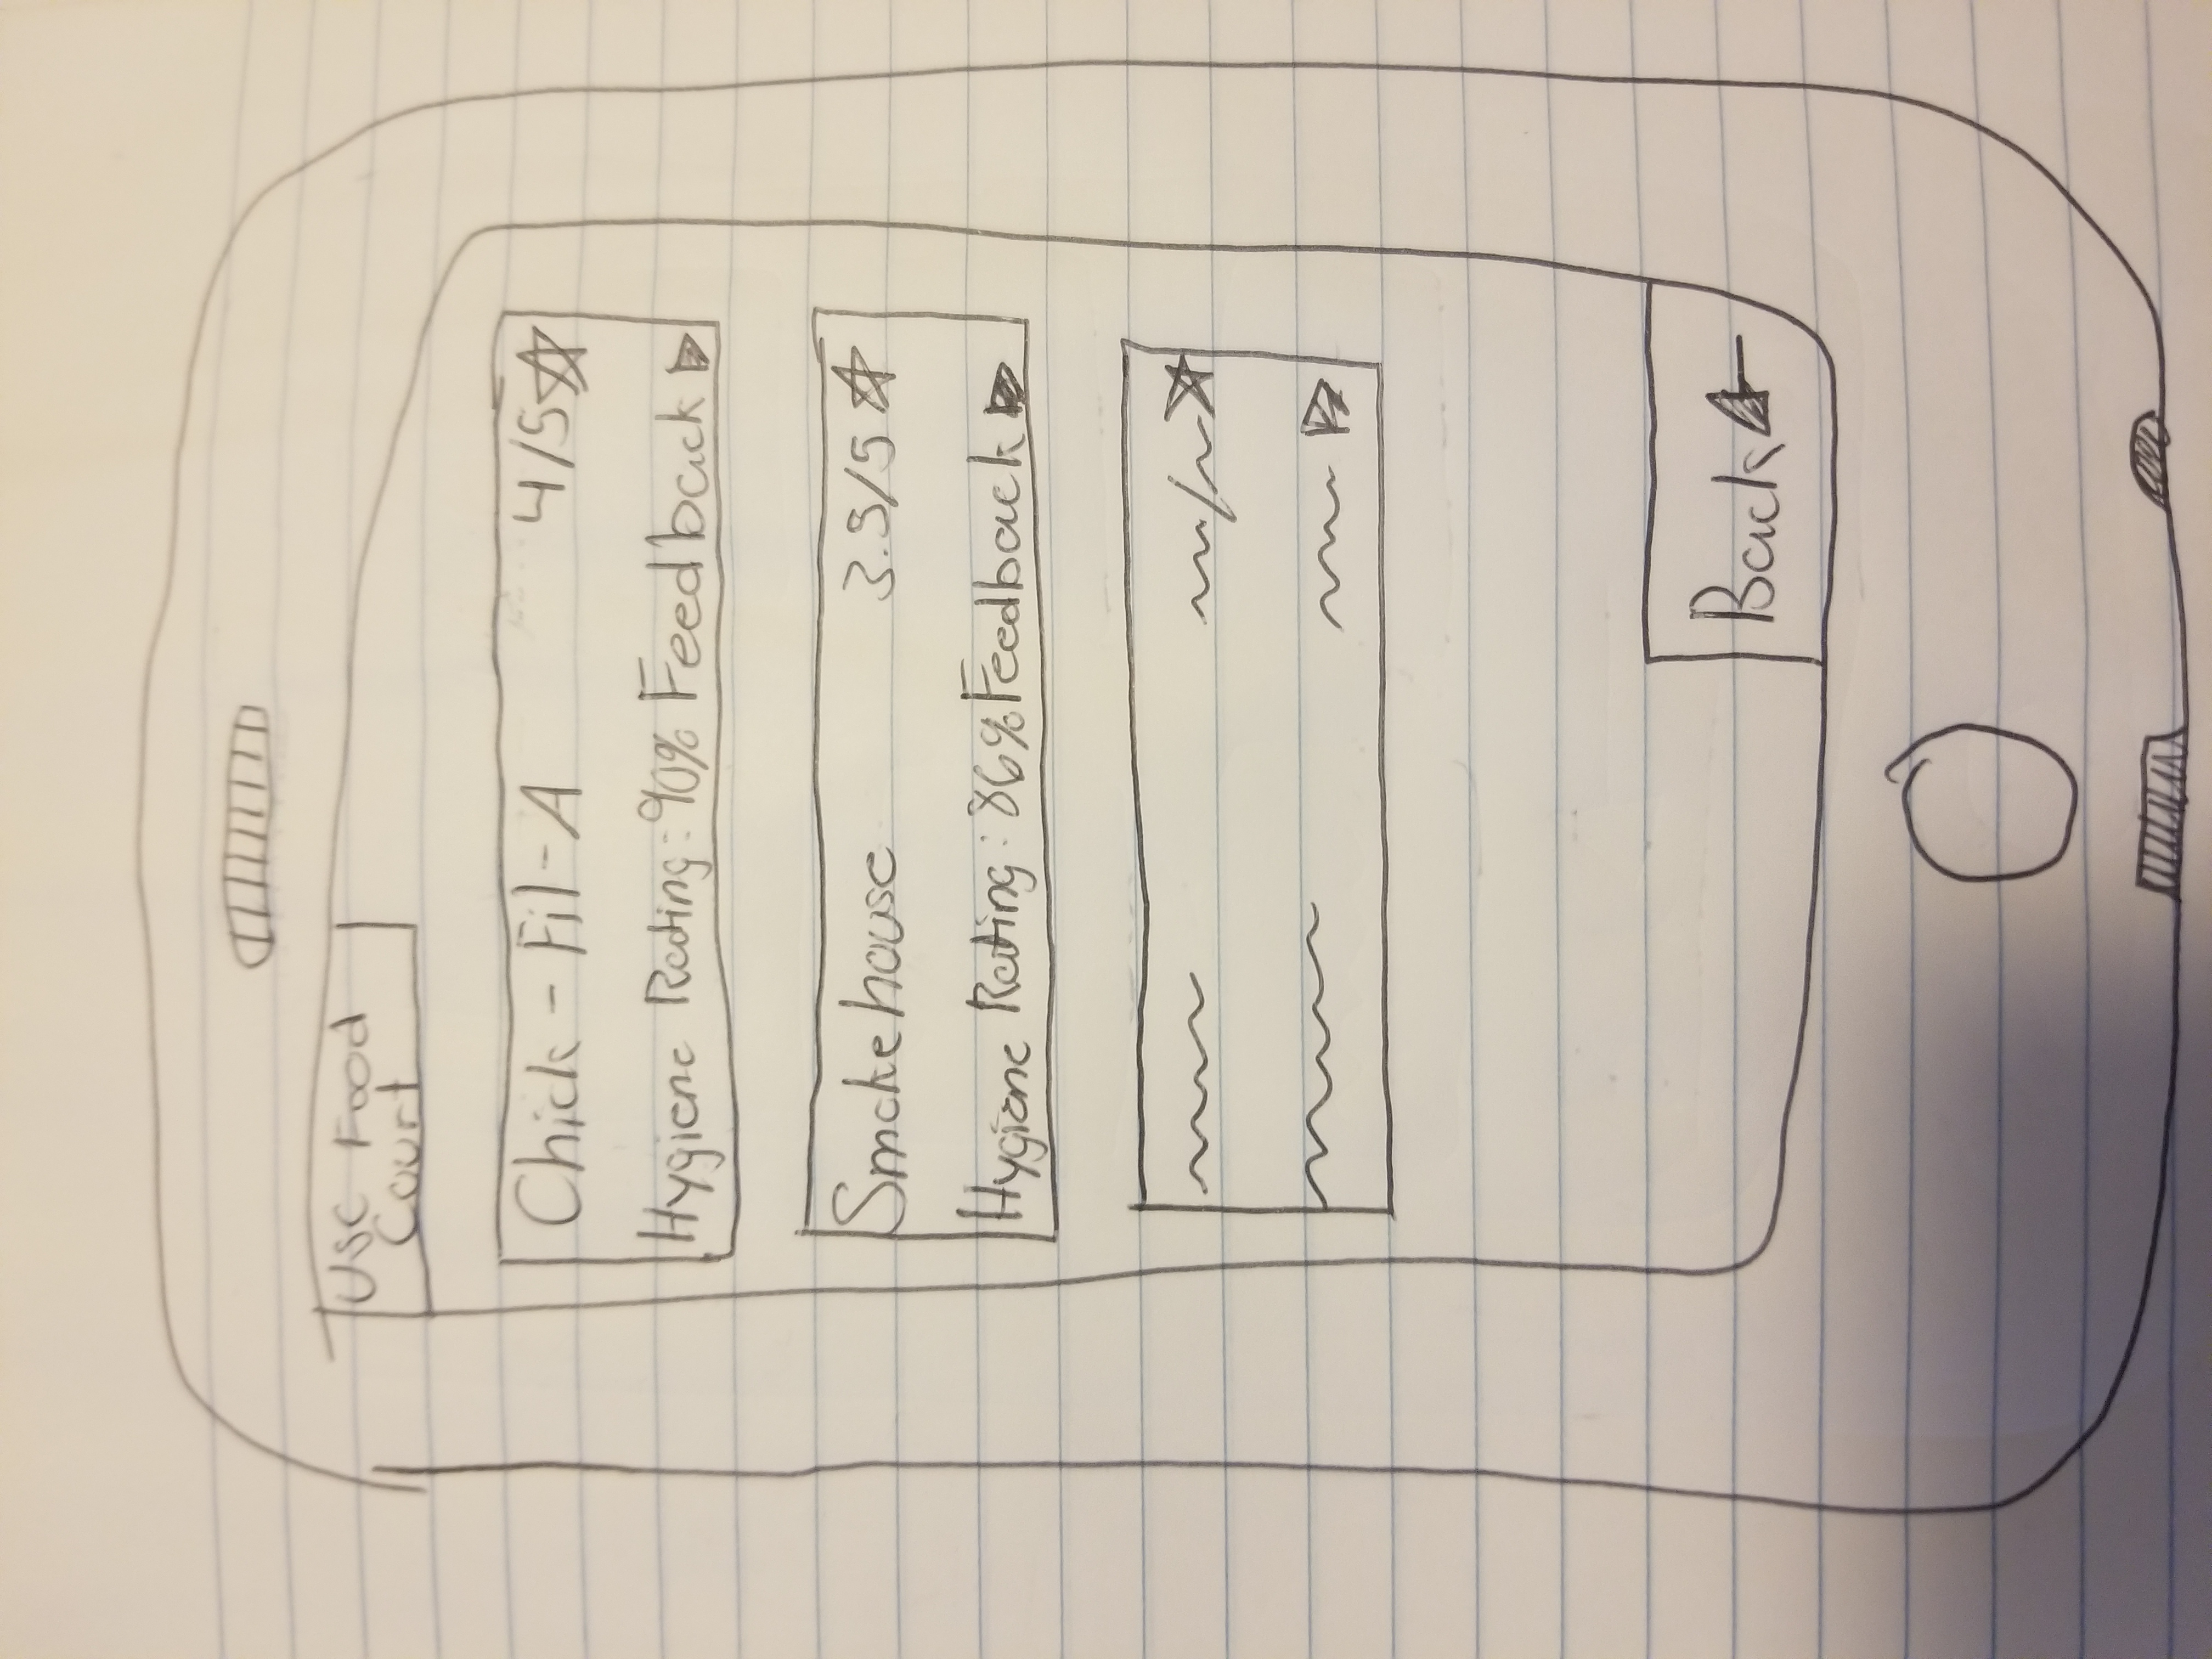 USC Food
Court
Chick-Fil-A 4/5
Hygiene Rating: 90% Feedback
Smokehouse 3.5/5
Hygiene Rating: 86% Feedback
Back